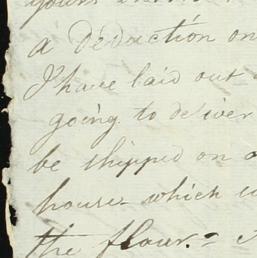 yours
a Deduction on
I have laid out
going to deliver
be shipped on a
house which
the flour. =